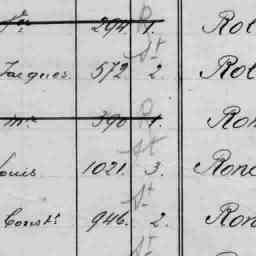 294 1. Rol
St
Jacques 572 2. Rol
Mce 390 1. Ron
St
Louis 1021. 3. Ron
St
Const. 946. 2. Ron
St